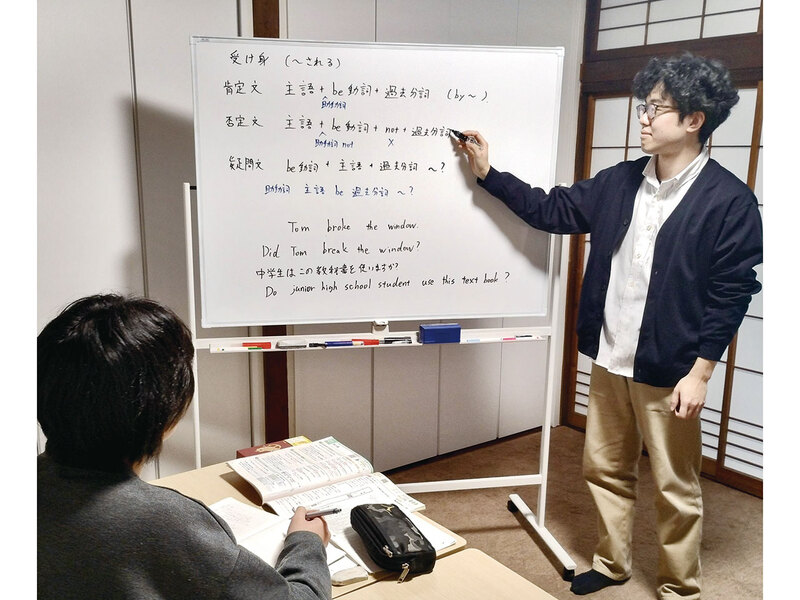 受け身 (～される)
肯定文 主語 + be動詞 + 過去分詞 (by ～)
助動詞
否定文 主語 + be動詞 + not + 過去分詞
助動詞 not ×
疑問文 be動詞 + 主語 + 過去分詞 ～?
助動詞 主語 be 過去分詞 ～?
Tom broke the window.
Did Tom break the window?
中学生はこの教科書を使いますか?
Do junior high school student use this text book ?